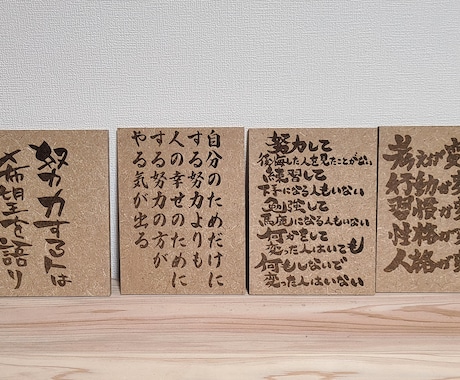 努力する人は
希望を語り
自分のためだけに
する努力よりも
人の幸せのために
する努力の方が
やる気が出る
努力して
後悔した人を見たことがない
練習して
下手になる人もいない
勉強して
馬鹿になる人もいない
何かをして
変った人はいても
何もしないで
変った人はいない
考えが変
行動が変
習慣が変
性格が変
人格が変